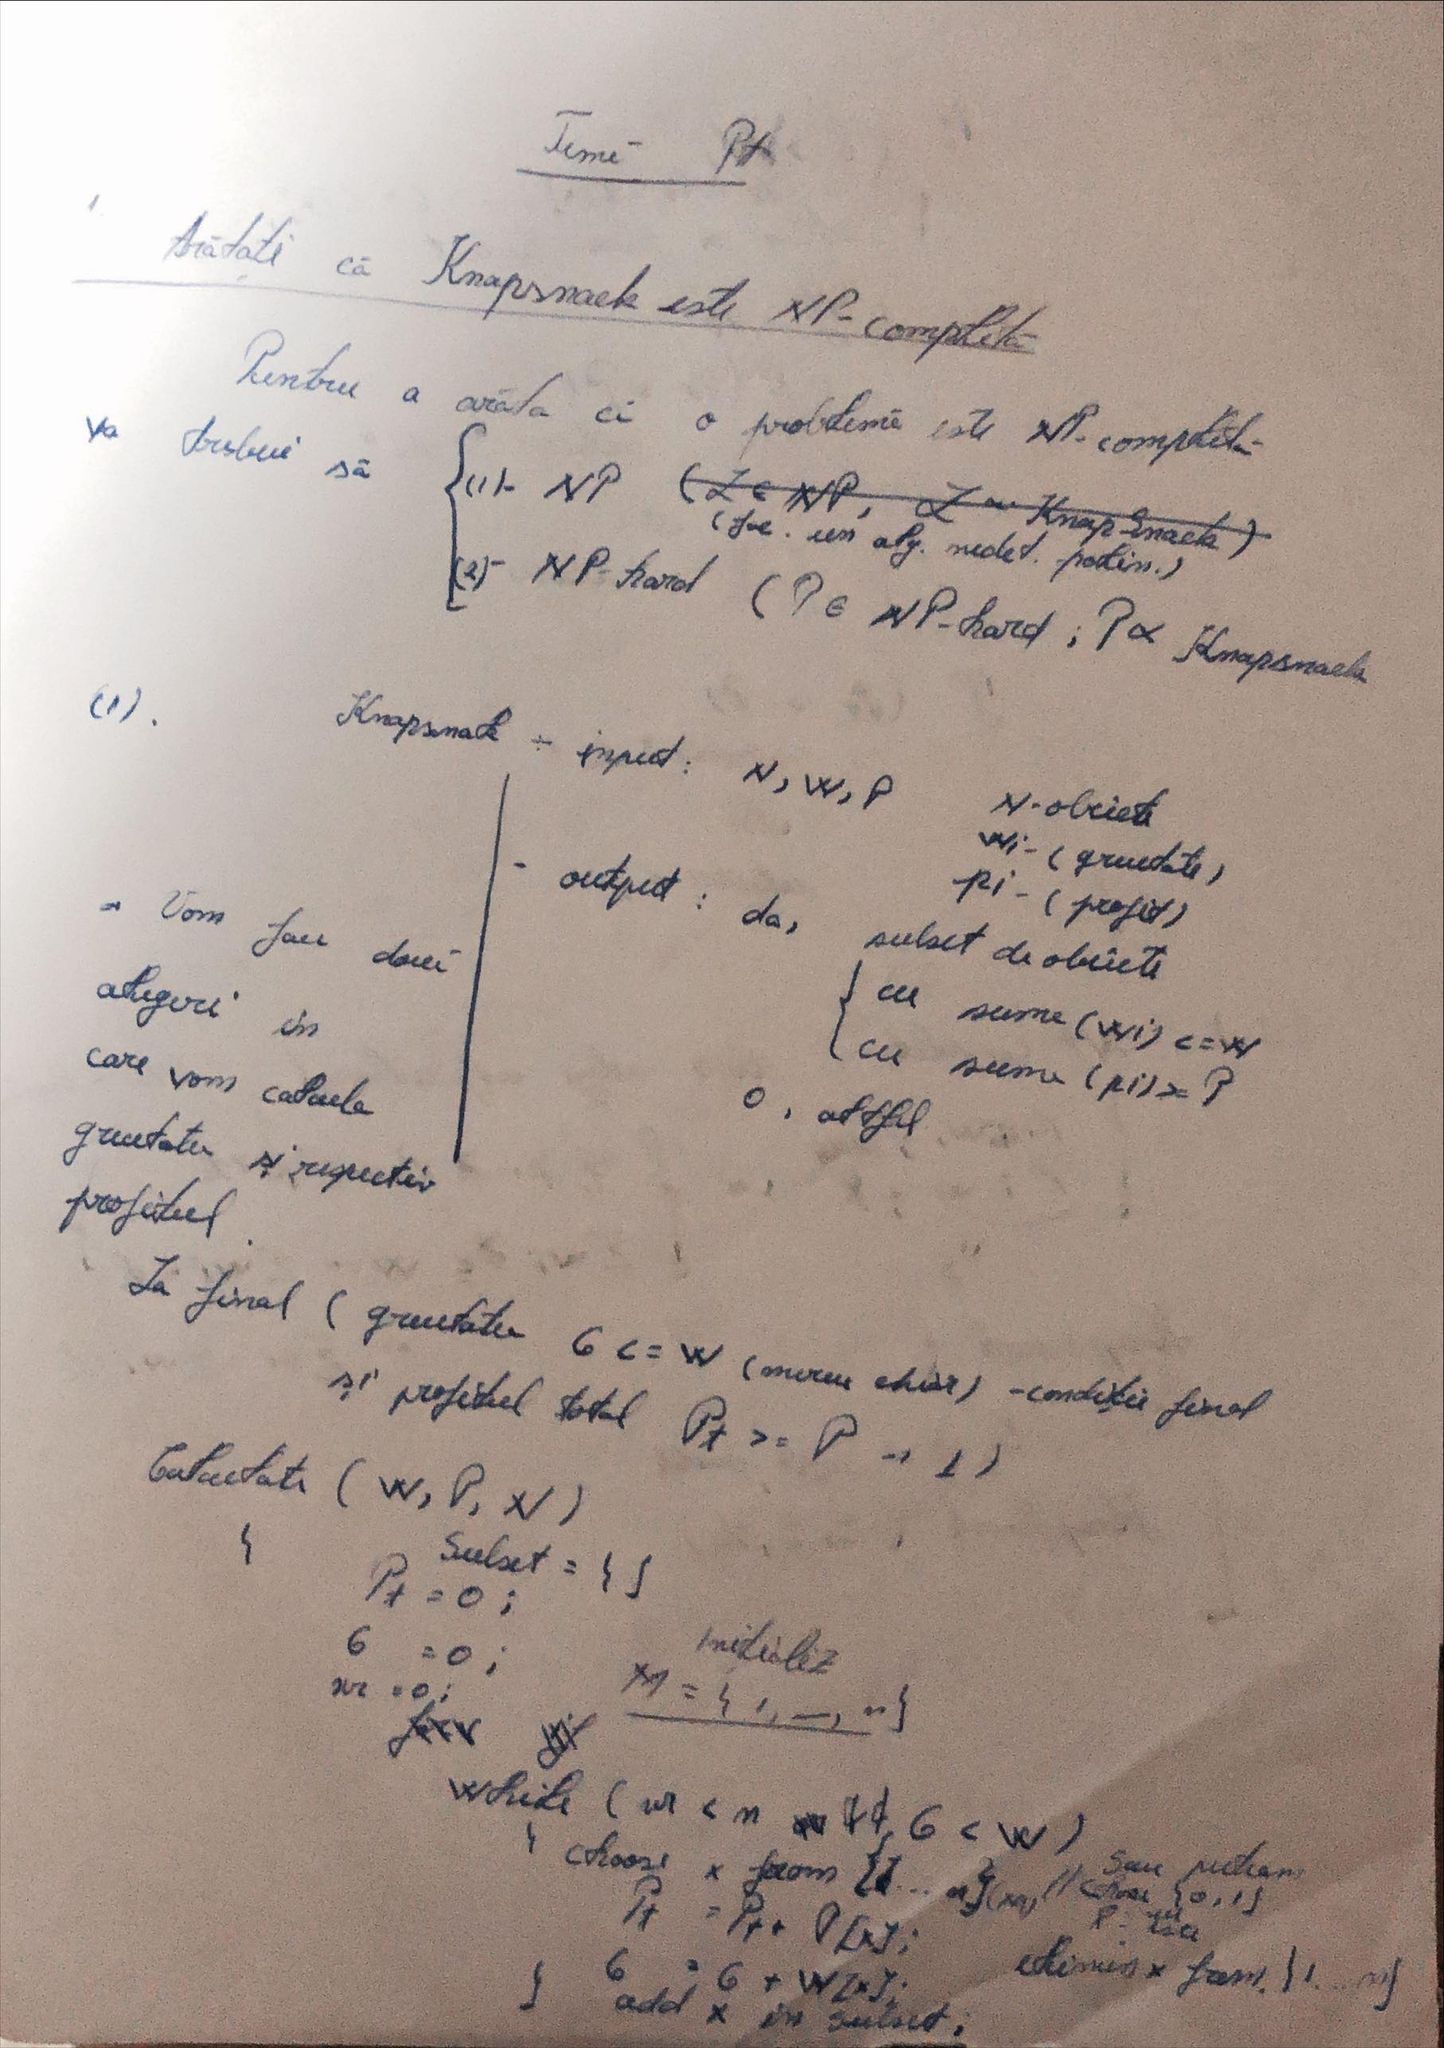 Temă Pt
1
Arătați că Knapsnack este NP-completă
Pentru a arăta că o problemă este NP-completă
va trebui să
(1)- NP (L ∈ NP, L ∝ KnapSnack)
(fac. un alg. nedet. polin.)
(2)- NP-hard (P ∈ NP-hard ; P ∝ Knapsnack
(1). Knapsnack - input: N, W, P
N-obiecte
wi-(greutate)
pi-(profit)
- output: da, subset de obiecte
cu suma (wi) <= W
cu suma (pi) >= P
0, altfel
- Vom face două
alegeri in
care vom calcula
greutatea și respectiv
profitul.
La final (greutatea G <= W (mereu chiar) -condiție final
și profitul total Pt >= P → 1)
Calculate (W, P, N)
{
Subset = { }
Pt = 0;
G = 0;
nr = 0;
initializ
M = {1, —, n}
while (nr < n && G < W)
{ choose x from {1...n}(M) // sau puteam
choose {0,1}
Pt = Pt + P[x];
G = G + W[x]; elimin x from {1...n}
} add x in subset;